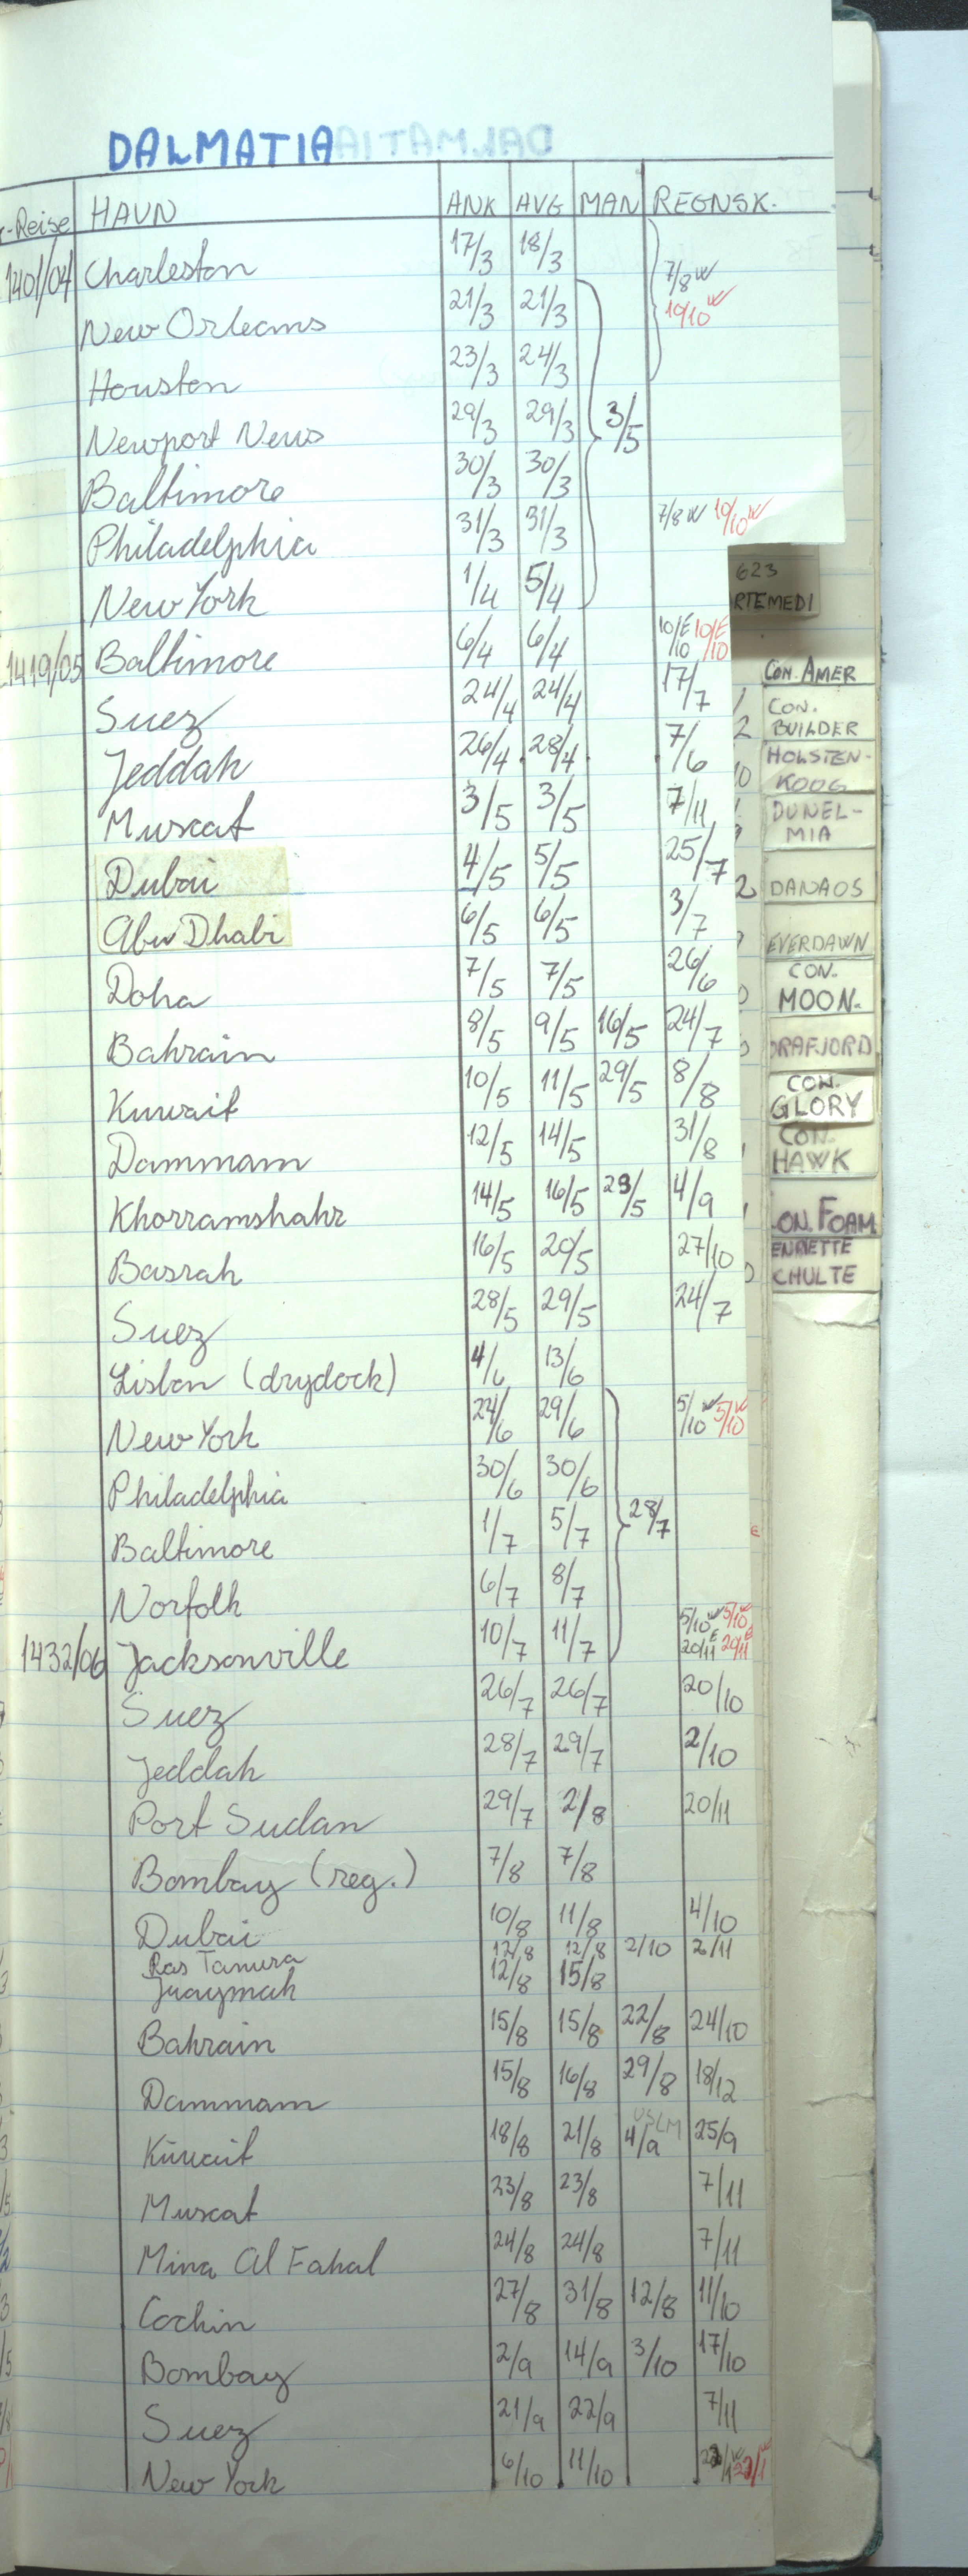 DALMATIA
-Reise HAVN ANK AVG MAN REGNSK.
1401/04 Charleston 17/3 18/3 7/8 W
New Orleans 21/3 21/3 10/10 W
Houston 23/3 24/3
Newport News 29/3 29/3 3/5
Baltimore 30/3 30/3
Philadelphia 31/3 31/3 7/8 W 10/10 W
New York 1/4 5/4
1419/05 Baltimore 6/4 6/4 10/10 E 10/10 E
Suez 24/4 24/4 17/7
Jeddah 26/4 28/4 7/6
Muscat 3/5 3/5 7/11
Dubai 4/5 5/5 25/7
Abu Dhabi 6/5 6/5 3/7
Doha 7/5 7/5 26/6
Bahrain 8/5 9/5 16/5 24/7
Kuwait 10/5 11/5 29/5 8/8
Dammam 12/5 14/5 31/8
Khorramshahr 14/5 16/5 23/5 4/9
Basrah 16/5 20/5 27/10
Suez 28/5 29/5 24/7
Lisbon (drydock) 4/6 13/6
New York 24/6 29/6 5/10 W 5/10 W
Philadelphia 30/6 30/6
Baltimore 1/7 5/7 28/7
Norfolk 6/7 8/7
1432/06 Jacksonville 10/7 11/7 5/10 W 5/10 W
20/11 E 20/11 E
Suez 26/7 26/7 20/10
Jeddah 28/7 29/7 2/10
Port Sudan 29/7 2/8 20/11
Bombay (reg.) 7/8 7/8
Dubai 10/8 11/8 4/10
Ras Tanura 12/8 12/8 2/10 2/11
Juaymah 12/8 15/8
Bahrain 15/8 15/8 22/8 24/10
Dammam 15/8 16/8 29/8 18/12
USLM
Kuwait 18/8 21/8 4/9 25/9
Muscat 23/8 23/8 7/11
Mina Al Fahal 24/8 24/8 7/11
Cochin 27/8 31/8 12/8 11/10
Bombay 2/9 14/9 3/10 17/10
Suez 21/9 22/9 7/11
New York 6/10 11/10 22/1 W 22/1 W
623
RTEMEDI
CON. AMER
CON.
BUILDER
HOLSTEN-
KOOG
DUNEL-
MIA
DANAOS
EVERDAWN
CON.
MOON.
RAFJORD
CON.
GLORY
CON.
HAWK
ON. FOAM
ENRIETTE
CHULTE